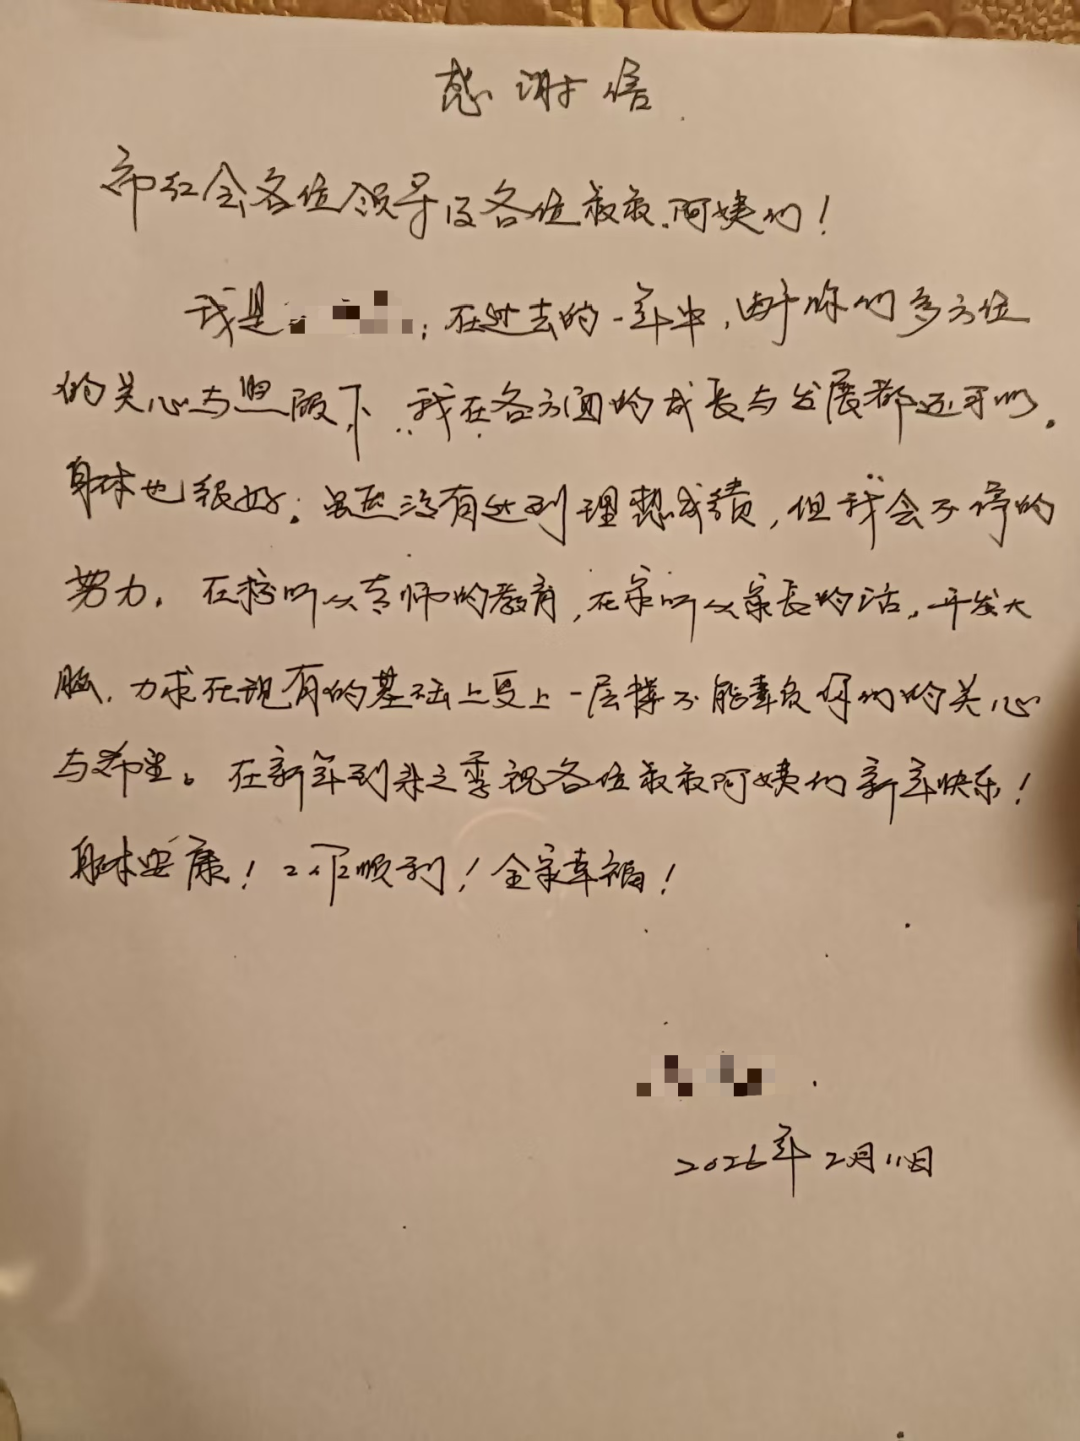 感谢信
市红会各位领导及各位叔叔、阿姨们！
我是 ；在过去的一年中，由于你们多方位
的关心与照顾下，我在各方面的成长与发展都还可以。
身体也很好。虽然没有达到理想成绩，但我会不停的
努力。在校听从老师的教育，在家听从家长的话，开发大
脑，力求在现有的基础上更上一层楼不能辜负你们的关心
与希望。在新年到来之季祝各位叔叔阿姨们新年快乐！
身体安康！工作顺利！全家幸福！
2026年2月11日